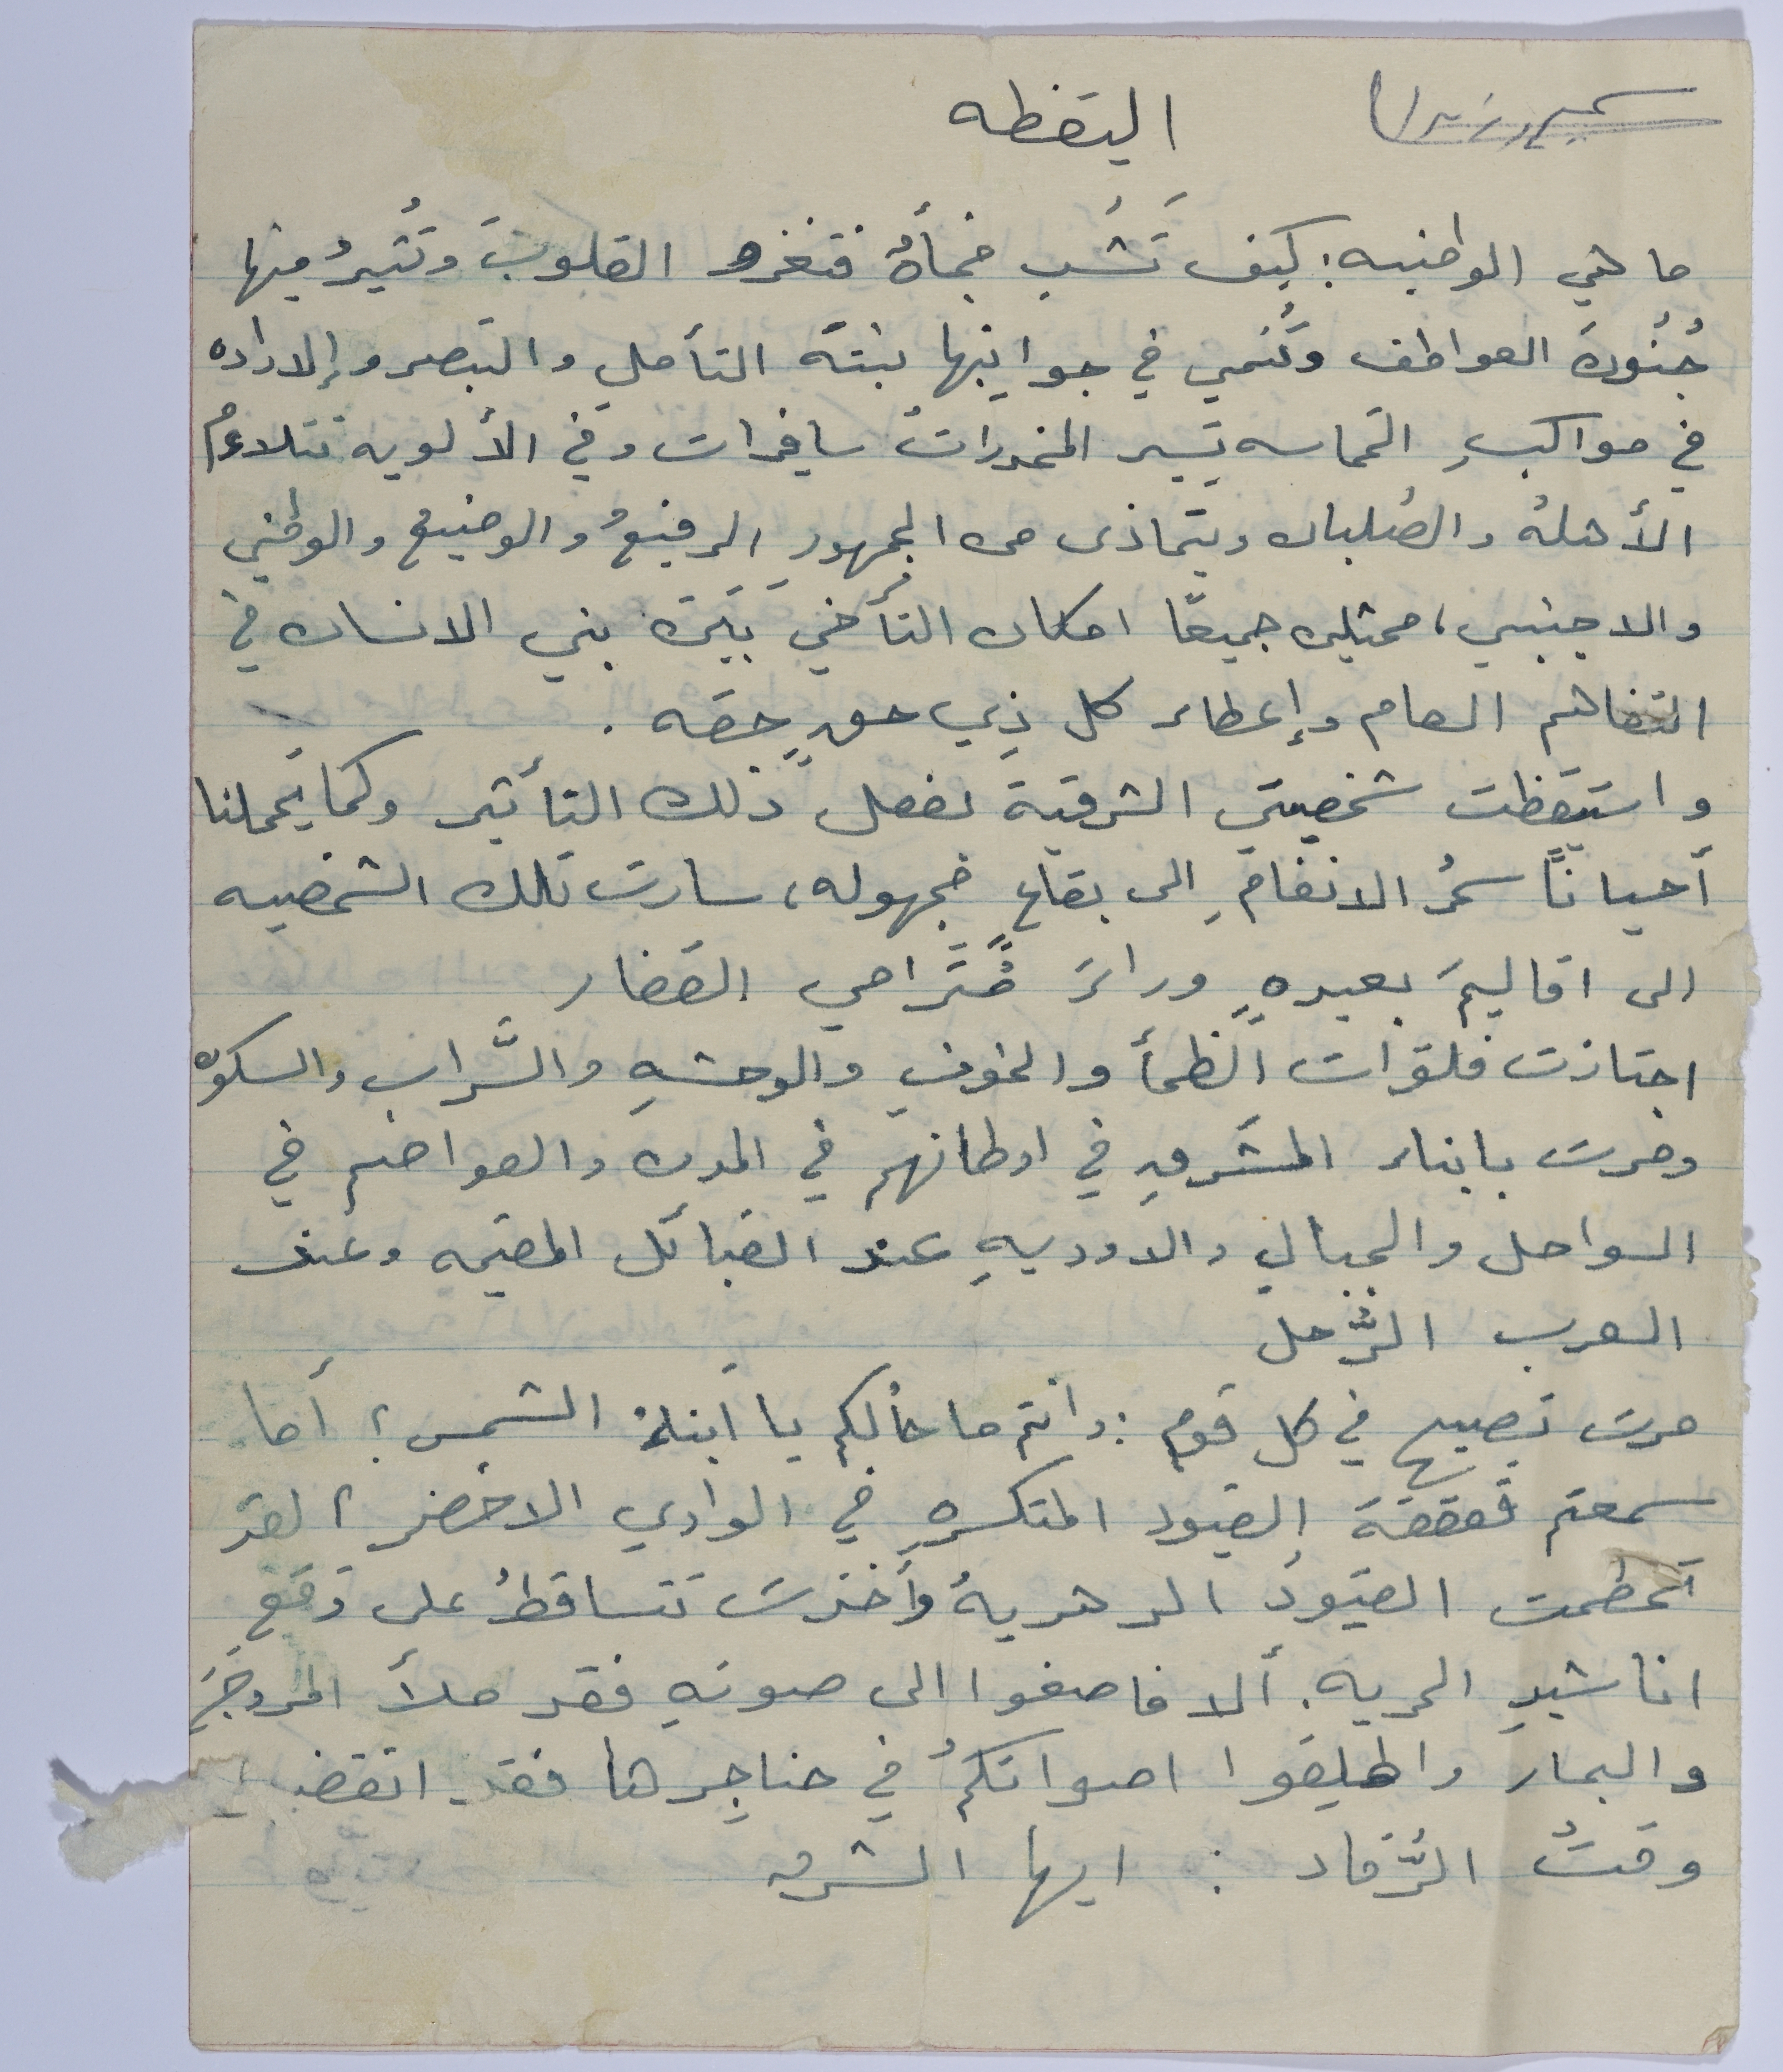 اليقظه
ما هي الوطنيه؛ كيف تَشُب فجأةً فتغزو القلوبَ وتُثيرُ فيها
جُنُودَ العواطف وتُنمي في جوانِبها نبتَة التأملِ والتبصر وإلاراده
في مواكبِ الحماسه تَسِير المخدراتُ سافِرات وفي الألويه تتلاءم
الأهلهُ والصُلبان ويتحاذى من الجمهورِ الرفيعُ والوضيعُ والوطني
والاجنبي، ممثلين جميعًا امكان التأخي بَيَنَ بني الانسان في
التفاهم العام وإعطاء كل ذِي حقٍ حقه .
واستيقظت شخصيتي الشرقية بفعل ذلك التأثير وكما يَحملنا
أحيانًا سحرُ الانغامِ الى بقاعٍ مجهوله، سارت تلك الشخصيه
الى اقاليمَ بعيدهٍ وراءَ مُتَرامي القفار
اجتازت فلوات الظمأ والخوفِ والوحشهِ والسَّراب والسكون
ومرت بابناء المشَرقِ في اوطانهم في المدن والعواصم في
السواحل والجبالِ والاوديهِ عند القبائل المقيمه وعند
العرب الرُّحل
مرت تصيح في كل قومٍ : وانتم ما حالُكم يا أبناءَ الشمس؟ أما
سمعتم قعقعةَ القيود المتكسرهِ في الوادي الاخضر؟ لقد
تَحطمت القيُودُ الدهريةُ وأخذت تتساقطُ على وَقع
اناشيدِ الحريه. ألا فاصغوا الى صوتهِ فقد ملأَ المروجَ
والبحارَ واطلِقوا اصواتكمُ في حناجِرها فقد انقضى
وقتُ الرُّقاد : ايها الشرق